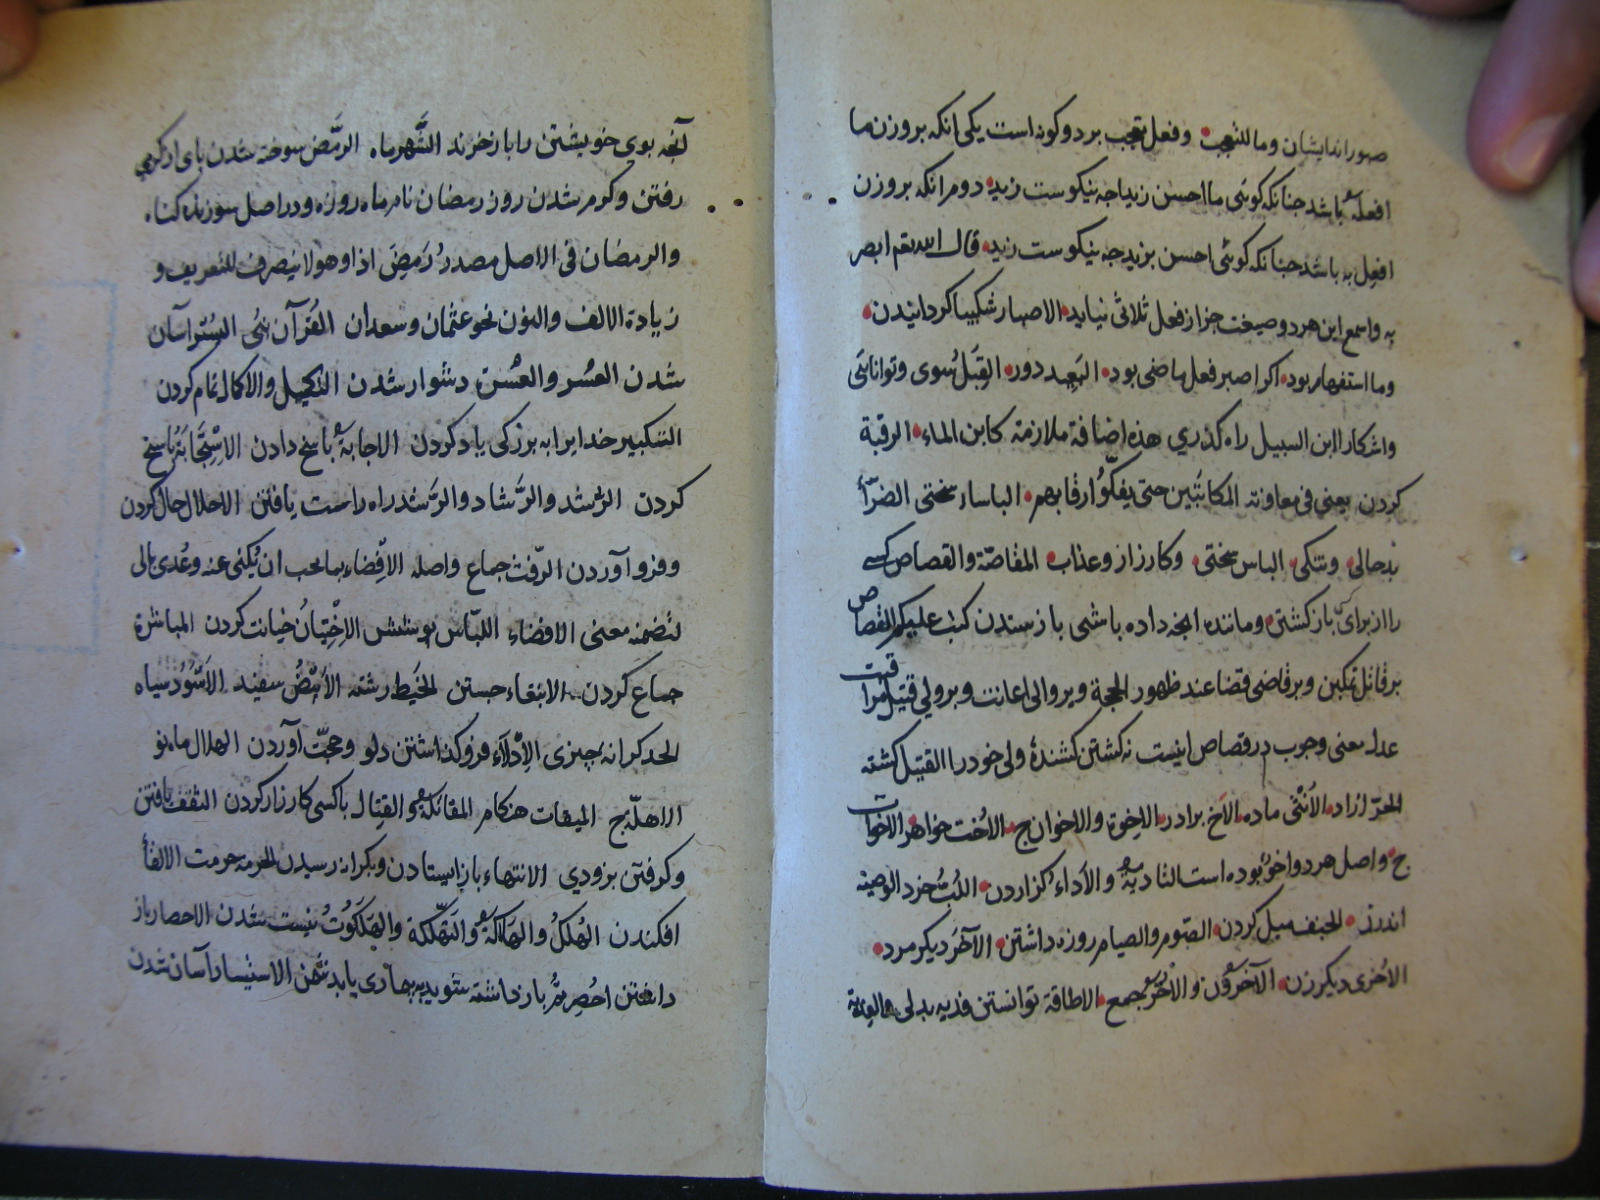 صبوراند ایشان وما للتعجب وفعل تعجب بر دو کونه است یکی انکه بروزن ما
افعله باشد جنانکه کوئی ما احسن زیدا جه نیکوست زید دوم انکه بروزن
افعل به باشد جنانکه کوئی احسن بزید جه نیکوست زید قال الله تع ابصر
به واسمع این هر دو صیغت جز از فعل ثلاثی نیاید الاصبار شکیبا کردانیدن
وما استفهام بود اکر اصبر فعل ماضی بود البَعِید دور القِبَل سوی وتوانایی
واشکارا ابن السبیل راه کذری هذه اضافة ملازمة کابن الماء الرقبة
کردن یعنی فی معاونة المکاتَبین حتی یفکّوُا رقابهم الباساء سختی الضرّاء
بدحالی وتنکی الباس سختی وکارزار وعذاب المقاصّة والقصاص کسی
را از برای کسی باز کشتن وماننده انجه داده باشی باز ستدن کتب علیکم القصاص
بر قاتل تمکین وبر قاضی قضا عند ظهور الحجة وبر والی اعانت وبر ولی قتیل
عدل معنی وجوب در قصاص اینست نه کشتن کشندهٔ ولی خود را القتیل کشته
الحرّ ازاد الاُنْثی ماده الاَخ برادر الاِخوة والاخوان ج الاُخت خواهر الاخوات
ج واصل هر دو اخوٌ بوده است التادیة والاَداء کزاردن اللبُّ خرد الوصیة
اندرز الجنف میل کردن الصّوم والصیام روزه داشتن الآخَر دیکر مرد
الاُخری دیکر زن الآخرُون والاُخَر جمع الاطاقة توانستن فدیه بدل والفدیة
آنجه بوی خویشتن را باز خرند الشَّهر ماه الرمَّض سوخته شدن بای از کرمی
رفتن وکرم شدن روز رمضان نام ماه روزه ودر اصل سوزنده کناه
والرمضان فی الاصل مصدرُ رَمِضَ اذا وهو لا ینصرف للتعریف و
زیادة الالف والنون نحو عثمان وسعدان القُرآن نُبی الیُسر آسان
شدن العسُر والعسُر دشوار شدن التکمیل والاکمال تمام کردن
التکبیر خدایرا به بزرکی یاد کردن الاجابة باسخ دادن الاِسْتِجَابَة باسخ
کردن الرُشد والرَّشاد والرَّشَد راه راست یافتن الاحلال حلال کردن
وفرو آوردن الرّفث جماع واصله الاِفْضاء بما یجب ان یُکنی عنه وعُدی بالی
لتضمنه معنی الافضاء اللبّاس بوشش الاِخْتِیَانُ خیانت کردن المباشرة
جماع کردن الابتغاء جستن الخَیط رشته الاَبیَضُ سفید الاَسْوَد سیاه
الحد کرانهٔ جیزی الاِدْلاَء فرو کذاشتن دلو وحجّت آوردن الهلال ماه نو
الاهلّة ج المیقات هنکام المقاتلة والقِتال باکسی کارزار کردن الثقف یافتن
وکرفتن بزودی الانتهاء باز ایستادن وبکرانه رسیدن الحرمة حرمت الالقاء
افکندن الهُلْکُ والهَلاکُ والتَهلُکة والهَلَکُوتُ نیست شدن الاحصار باز
داشتن اُحْصِرتُمْ باز داشته شوید به بیماری یا بدشمن الاستیسار آسان شدن